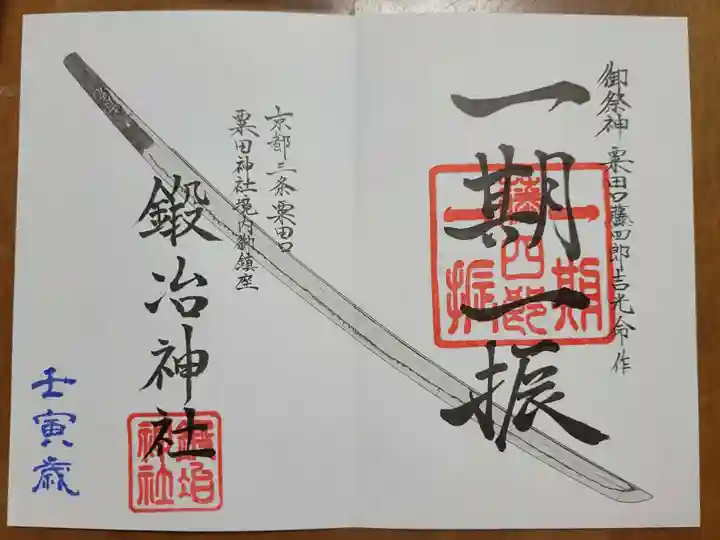 御祭神 粟田口藤四郎吉光命作
一期一振
一期
藤四郎
一振
京都三条粟田口
粟田神社境内御鎮座
鍛冶神社
鍛冶
神社
壬寅歳